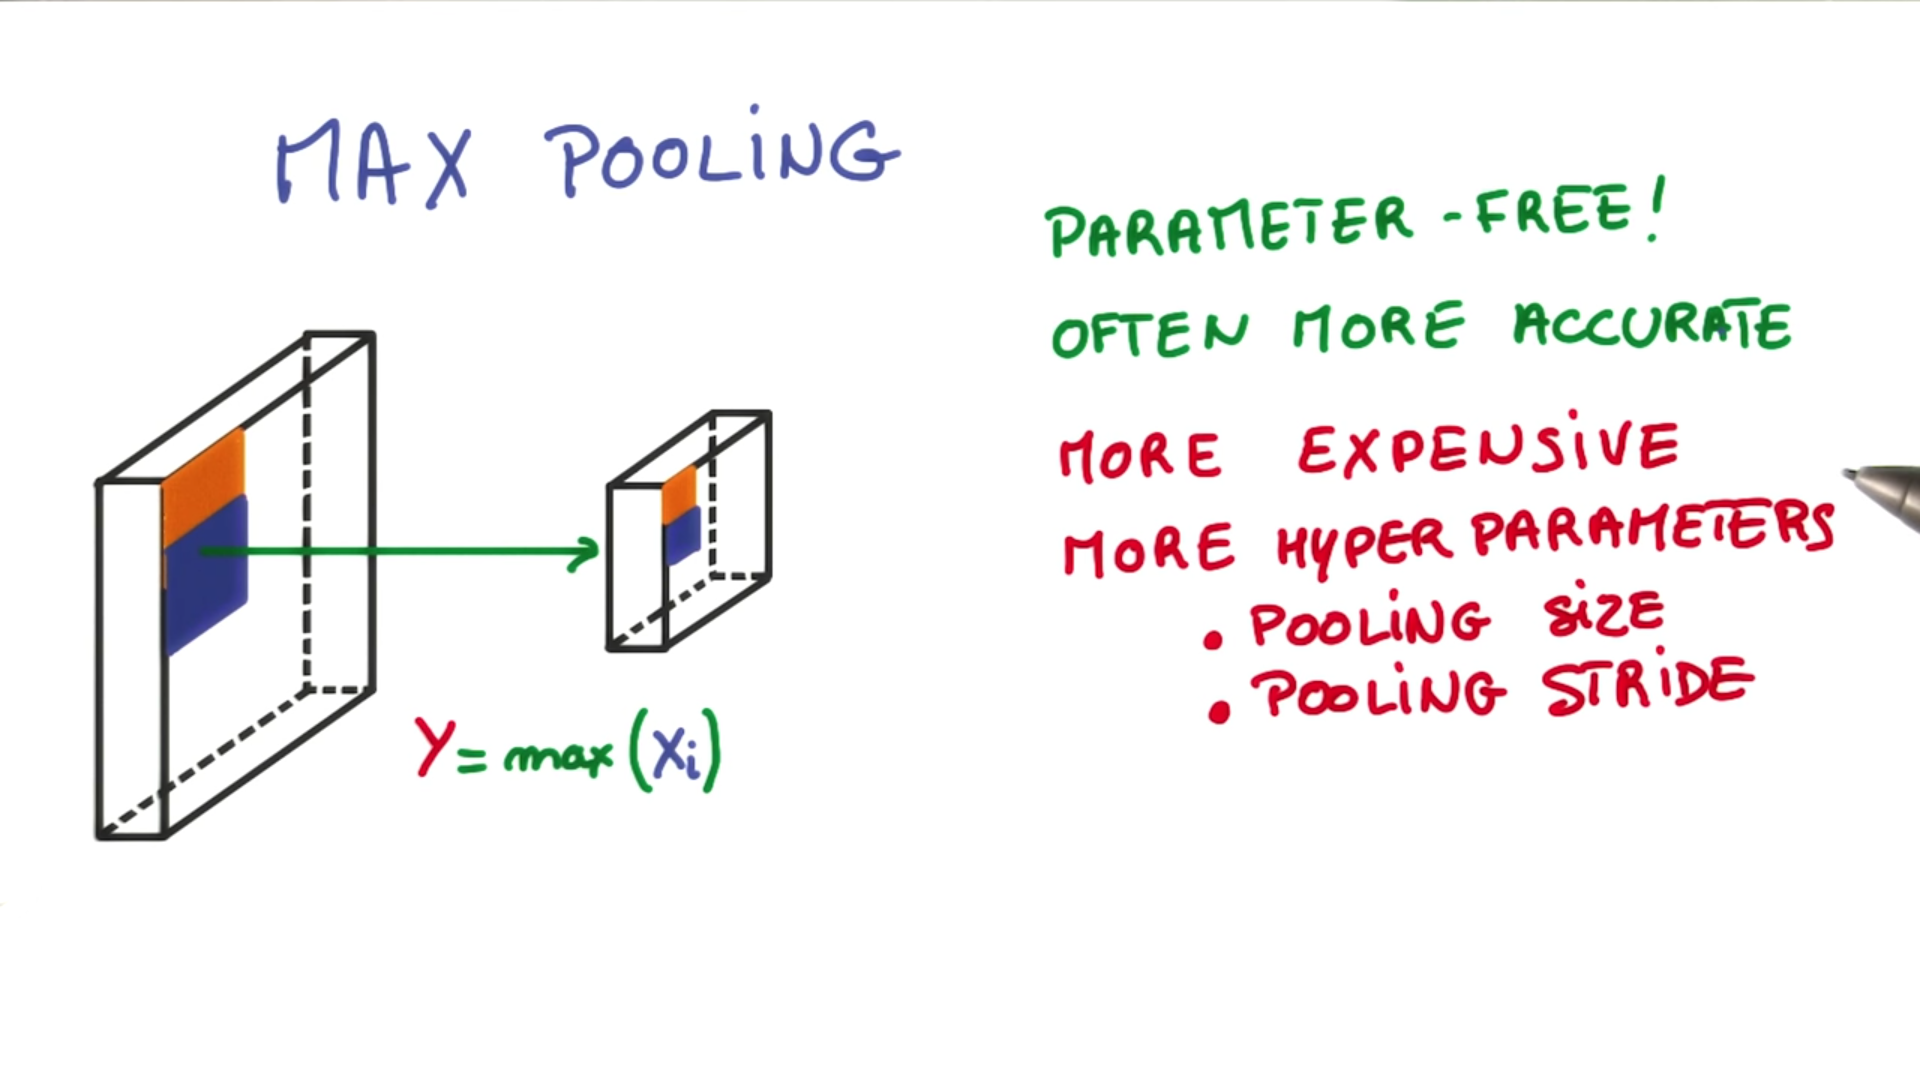 MAX POOLiNG
PARAMETER-FREE!
OFTEN MORE ACCURATE
MORE EXPENSiVE
MORE HYPER PARAMETERS
• POOLiNG SiZE
• POOLiNG STRiDE
Y = max (Xi)